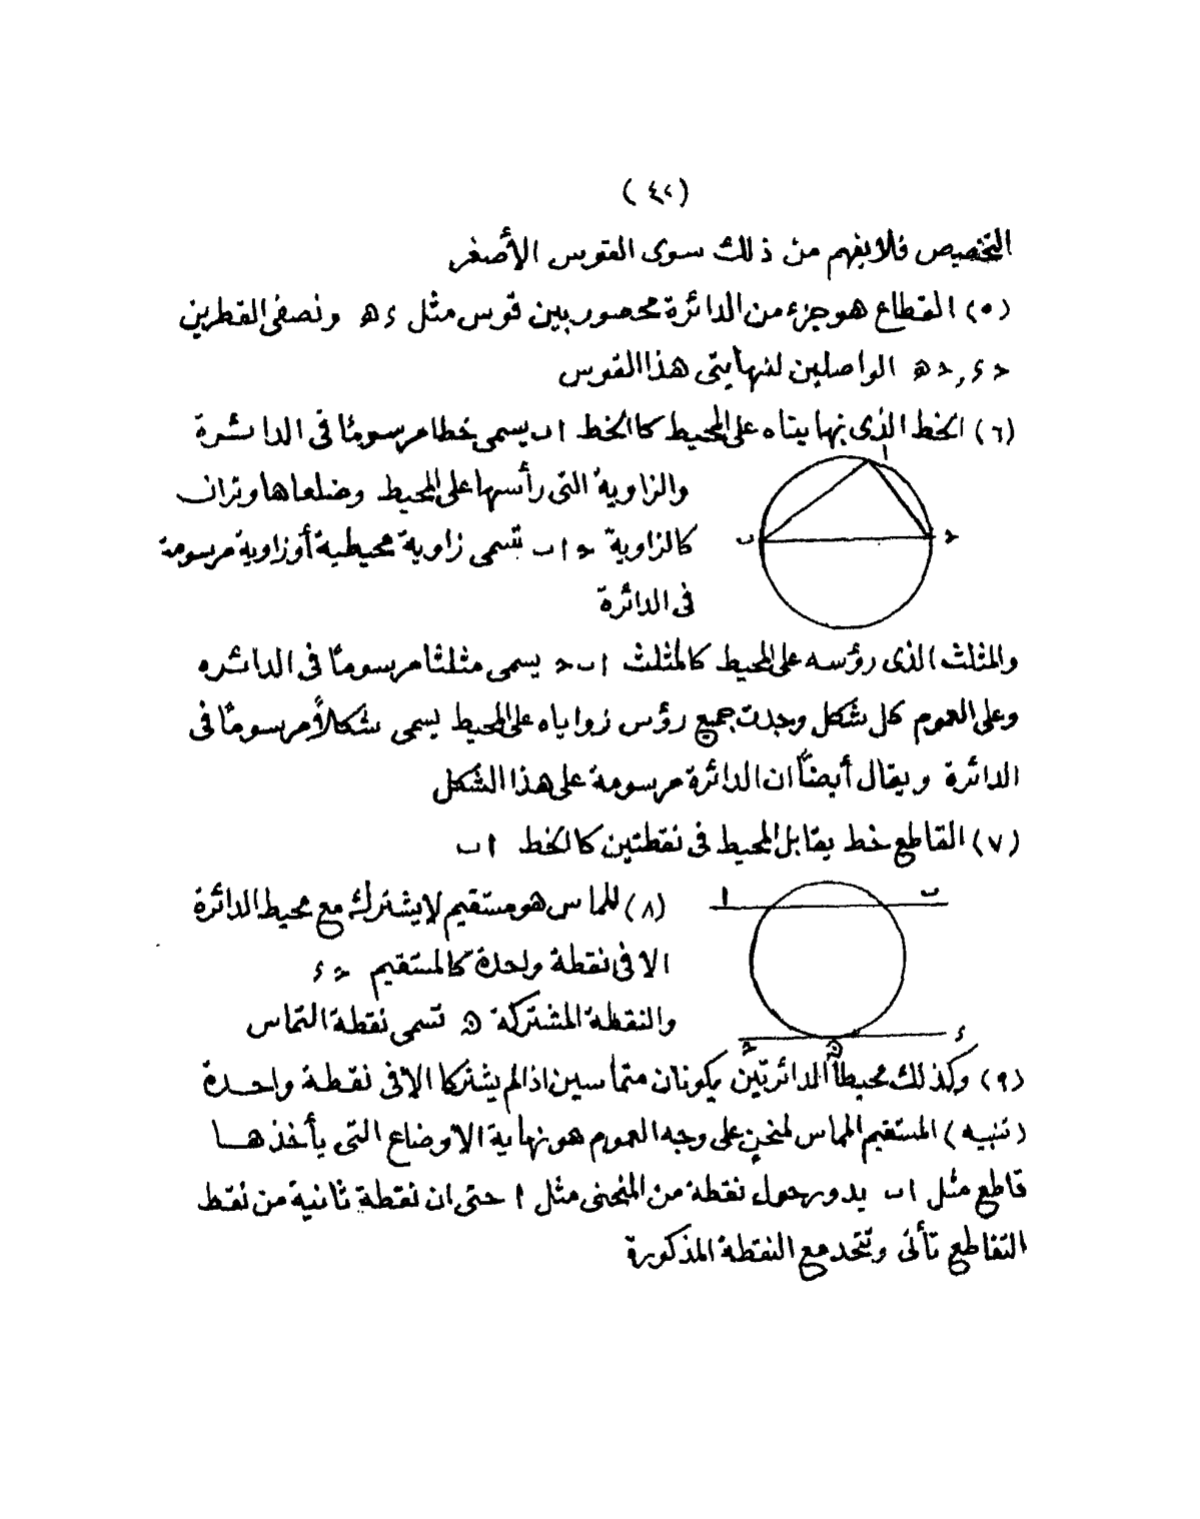 (٤٢)
التخصيص فلا يفهم من ذلك سوى القوس الأصغر
(٥) القطاع هو جزء من الدائرة محصور بين قوس مثل د ه ونصفى القطرين
ح د , ح ه الواصلين لنهايتى هذا القوس
(٦) الخط الذى نهايتاه على المحيط كالخط ا ب يسمى خطا مرسومًا فى الدائرة
والزاوية التى رأسها على المحيط وضلعاها وتران
كالزاوية ح ا ب تسمى زاوية محيطية أو زاوية مرسومة
فى الدائرة
ا
ب
ح
والمثلث الذى رؤسه على المحيط كالمثلث ا ب ح يسمى مثلثا مرسومًا فى الدائره
وعلى العموم كل شكل وجدت جميع رؤس زواياه على المحيط يسمى شكلاً مرسومًا فى
الدائرة ويقال أيضًا ان الدائرة مرسومة على هذا الشكل
(٧) القاطع خط يقابل المحيط فى نقطتين كالخط ا ب
ا
ب
(٨) المماس هو مستقيم لا يشترك مع محيط الدائرة
الا فى نقطة واحدة كالمستقيم ح د
والنقطة المشتركة ه تسمى نقطة التماس
ح
ه
د
(٩) وكذلك محيطا الدائرتين يكونان متماسين اذا لم يشتركا الا فى نقطة واحدة
(تنبيه) المستقيم المماس لمنحنٍ على وجه العموم هو نهاية الاوضاع التى يأخذها
قاطع مثل ا ب يدور حول نقطة من المنحنى مثل ا حتى ان نقطة ثانية من نقط
التقاطع تأتى وتتحد مع النقطة المذكورة